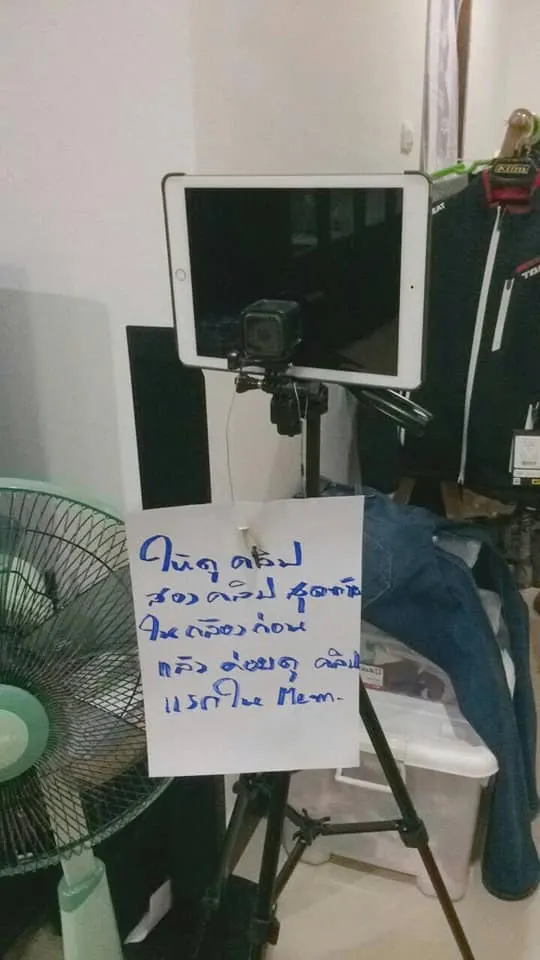 ให้ดู คลิป
สองคลิป สุดท้าย
ในกล้องก่อน
แล้ว ค่อยดู คลิป
แรกใน Mem.
KLIM